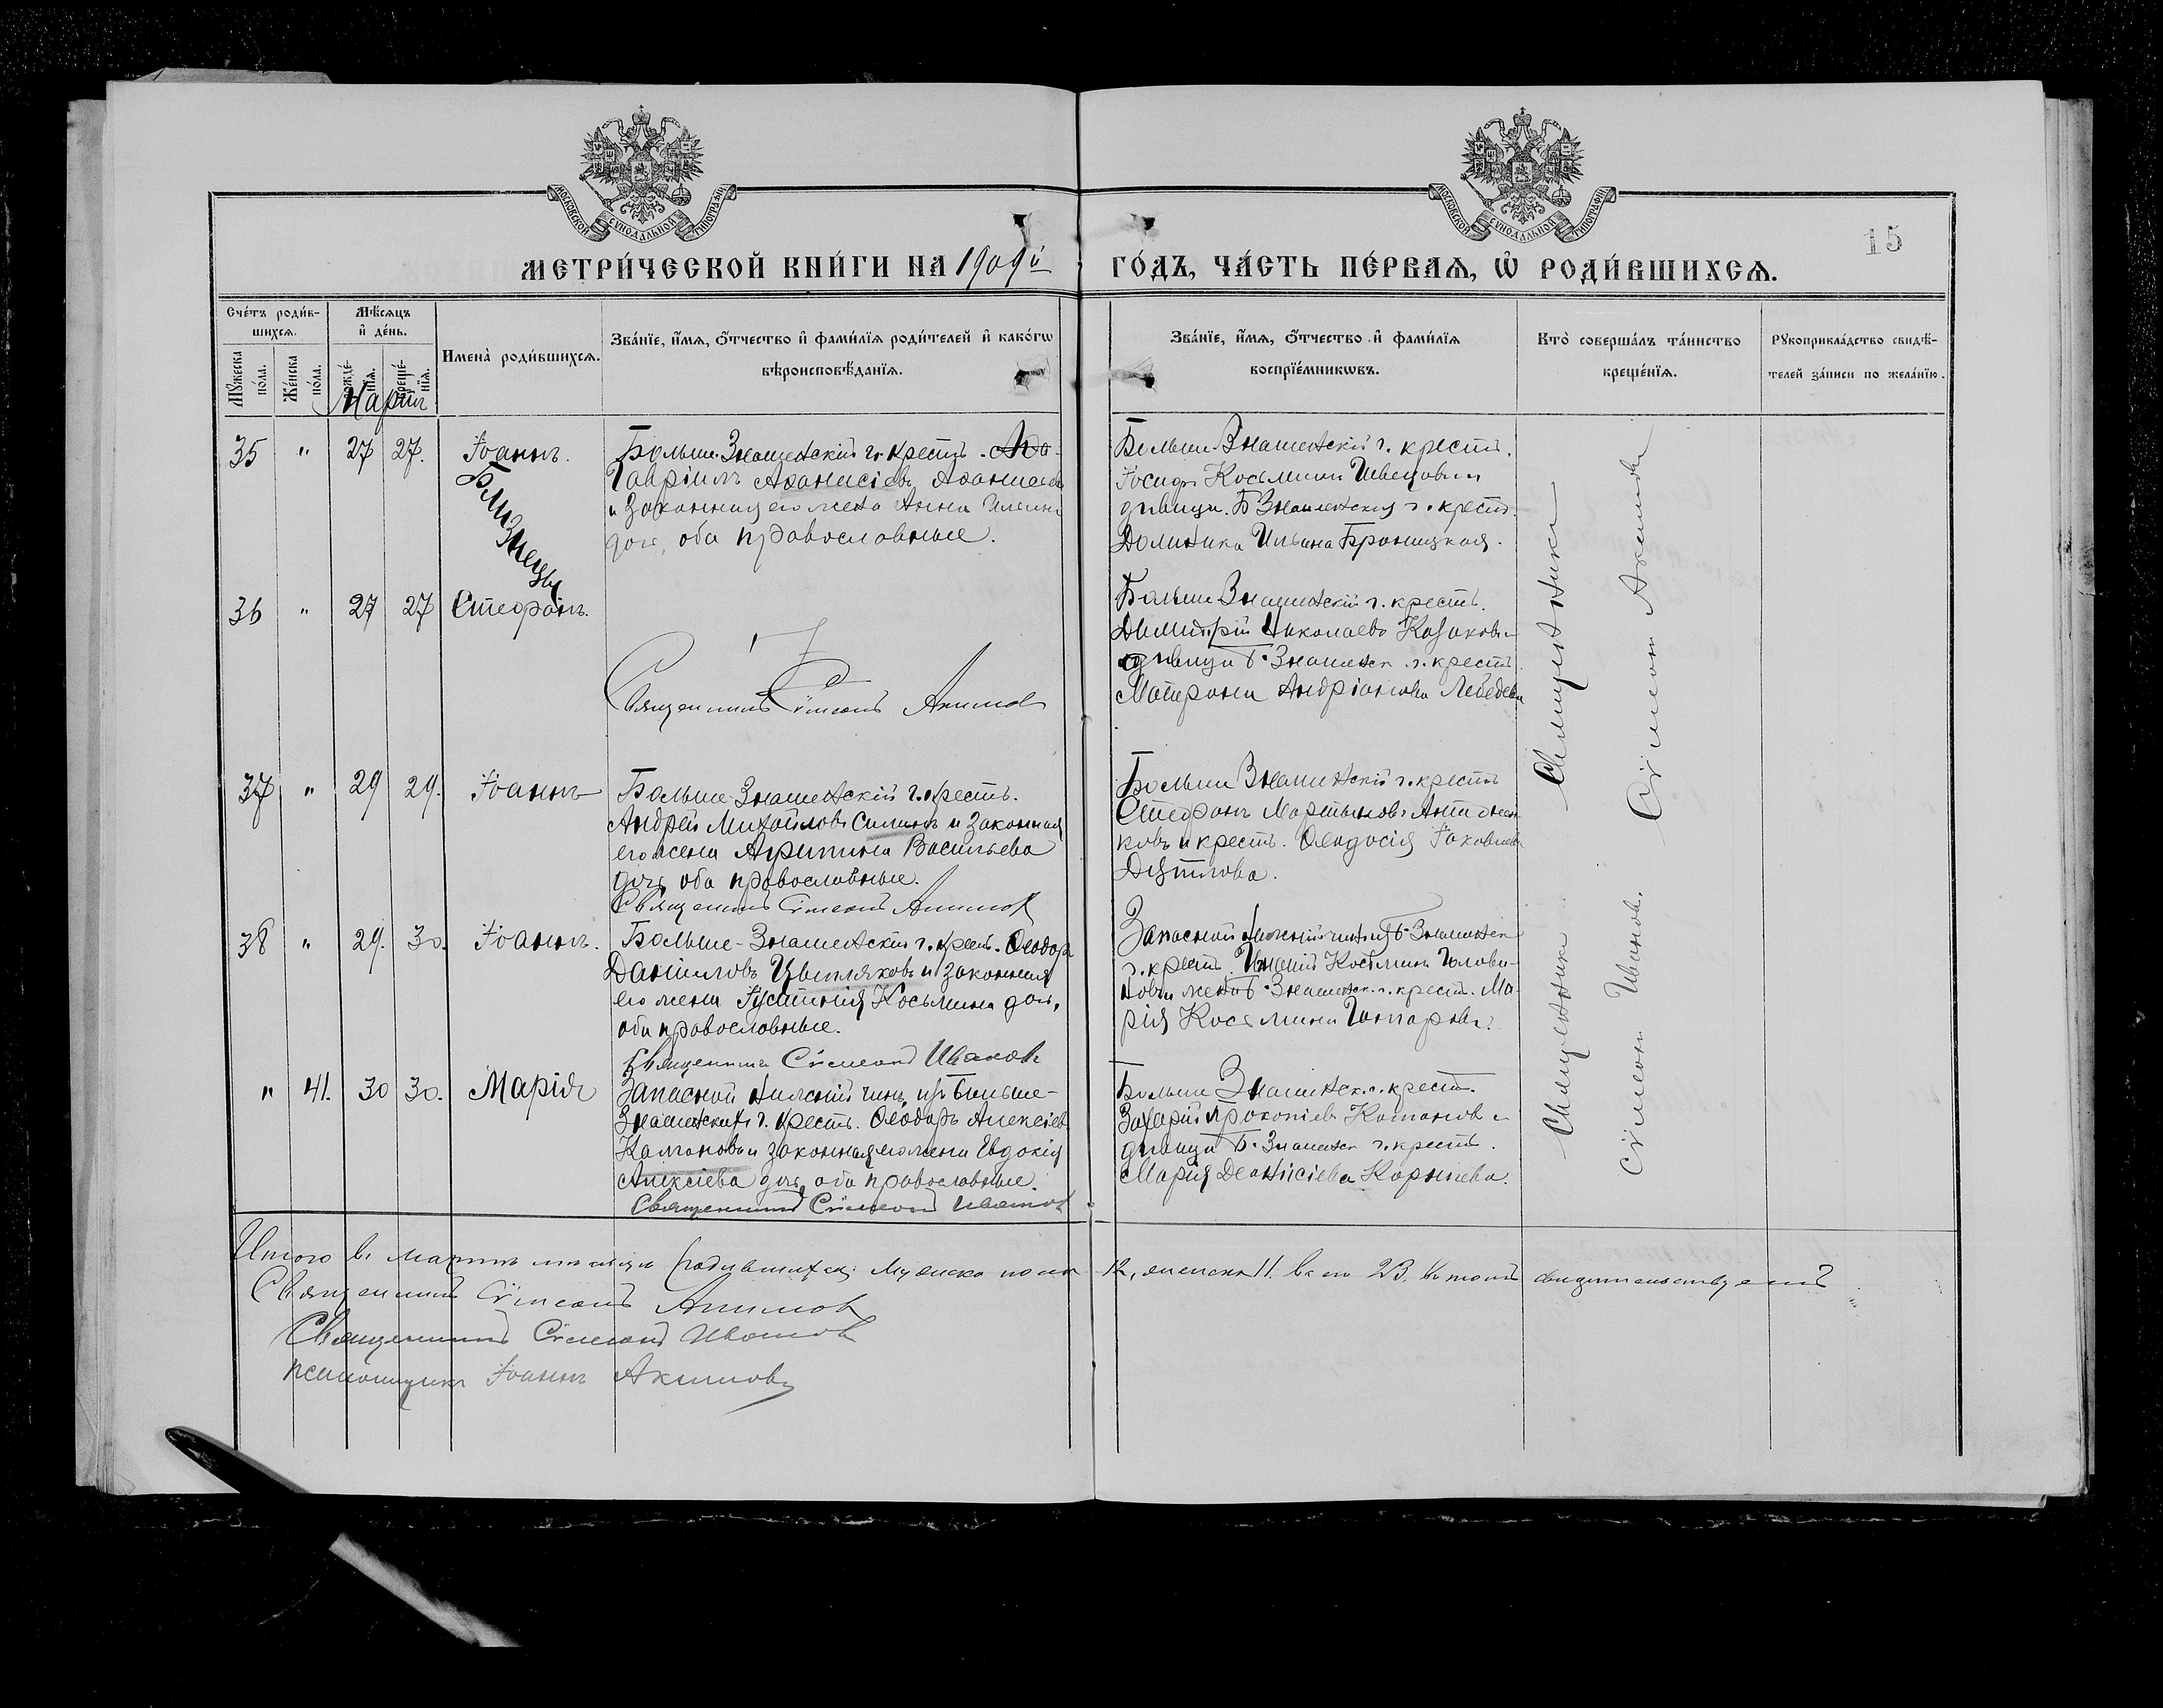 МОСКОВСКОЙ СѴНОДАЛЬНОЙ ТИПОГРАФІИ
МОСКОВСКОЙ СѴНОДАЛЬНОЙ ТИПОГРАФІИ
15
МЕТРИ́ЧЕСКОЙ КНИ́ГИ НА 1909й ГО́ДЪ, ЧА́СТЬ ПЕ́РВАЯ, Ѡ҆ РОДИ́ВШИХСѦ.
Сче́тъ роди́в-
шихсѧ.
Мꙋ́жеска по́ла.
Же́нска по́ла.
Мѣ́сѧцъ
и҆ де́нь.
рожде́-нїѧ.
креще́-нїѧ.
Имена̀ роди́вшихсѧ.
Зва́нїе, и҆́мѧ, ѻ҆́тчество и҆ фами́лїѧ роди́телей и҆ како́гѡ
вѣроисповѣ́данїѧ.
Зва́нїе, и҆́мѧ, ѻ҆́тчество и҆ фами́лїѧ
воспрїе́мникѡвъ.
Кто̀ соверша́лъ та́инство
креще́нїѧ.
Рꙋкоприкла́дство свидѣ́-
телей за́писи по жела́нїю.
Мартъ
35 " 27 27. Іоаннъ.
Близнецы
Больше-Знаменскій г. крест.
Гавріилъ Аѳанасіевъ
и законная его жена Анна Ильина
доч, оба православные.
Больше Знаменскій г. крест.
Іосифъ Косьминъ Швецовъ и
дѣвица Б Знаменская г. крест.
Домника Ильина Броницкая.
36 " 27 27 Стефанъ.
Священникъ Сѵмеонъ Акимовъ
Больше Знаменскій г. крест.
Димитрій Николаевъ Козаковъ и
дѣвица Б. Знаменск. г. крест.
Матрона Андріанова Лебедева
Священникъ
Сѵмеонъ Акимовъ
37 " 29 29. Іоаннъ
Больше-Знаменскій г. крест.
Андрей Михайловъ Силинъ и законная
его жена Агрипина Васильева
доч, оба православные.
Священникъ Сѵмеонъ Акимовъ
Больше Знаменскій г. крест.
Стефанъ Мартыновъ
ковъ и крест. Ѳеодосія Іаковлева
Дѣтлова.
38 " 29. 30. Іоаннъ.
Больше-Знаменскій г. крест. Ѳеодоръ
Даниловъ Цыпляковъ и законная
его жена Іустинія Косьмина доч,
оба православные.
Священникъ Сѵмеонъ Ивановъ
Запасной нижній чинъ изъ Б-Знаменск
г. крест. Косьминъ Голови-
новъ и жена Б-Знаменск. г. крест. Ма-
рія Косьмина Гончарова.
Священникъ
Сѵмеонъ Ивановъ.
" 41. 30 30. Марія
Запасной нижній чинъ изъ Больше-
Знаменскихъ г. крест. Ѳеодоръ Алексіевъ
Калмановъ и законная его жена Евдокія
Алексіева доч, оба православные.
Священникъ Сѵмеонъ Ивановъ
Больше Знаменск. г. крест.
Захарій Прокопіевъ Катановъ и
дѣвица Б. Знаменск г. крест.
Марія Деонисіева Корнѣева.
Итого въ мартѣ мѣсяцѣ родившихся: мужеска пола 12, женска 11. всего 23. въ томъ свидѣтельствуемъ
Священникъ Сѵмеонъ Акимовъ
Священникъ Сѵмеонъ Ивановъ
псаломщикъ Іоаннъ Акимовъ